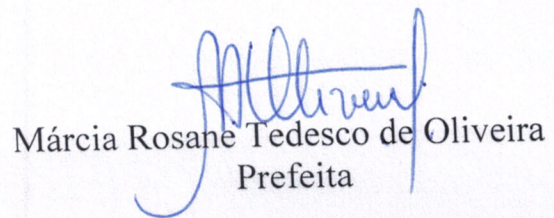 Márcia Rosane Tedesco de Oliveira
Prefeita